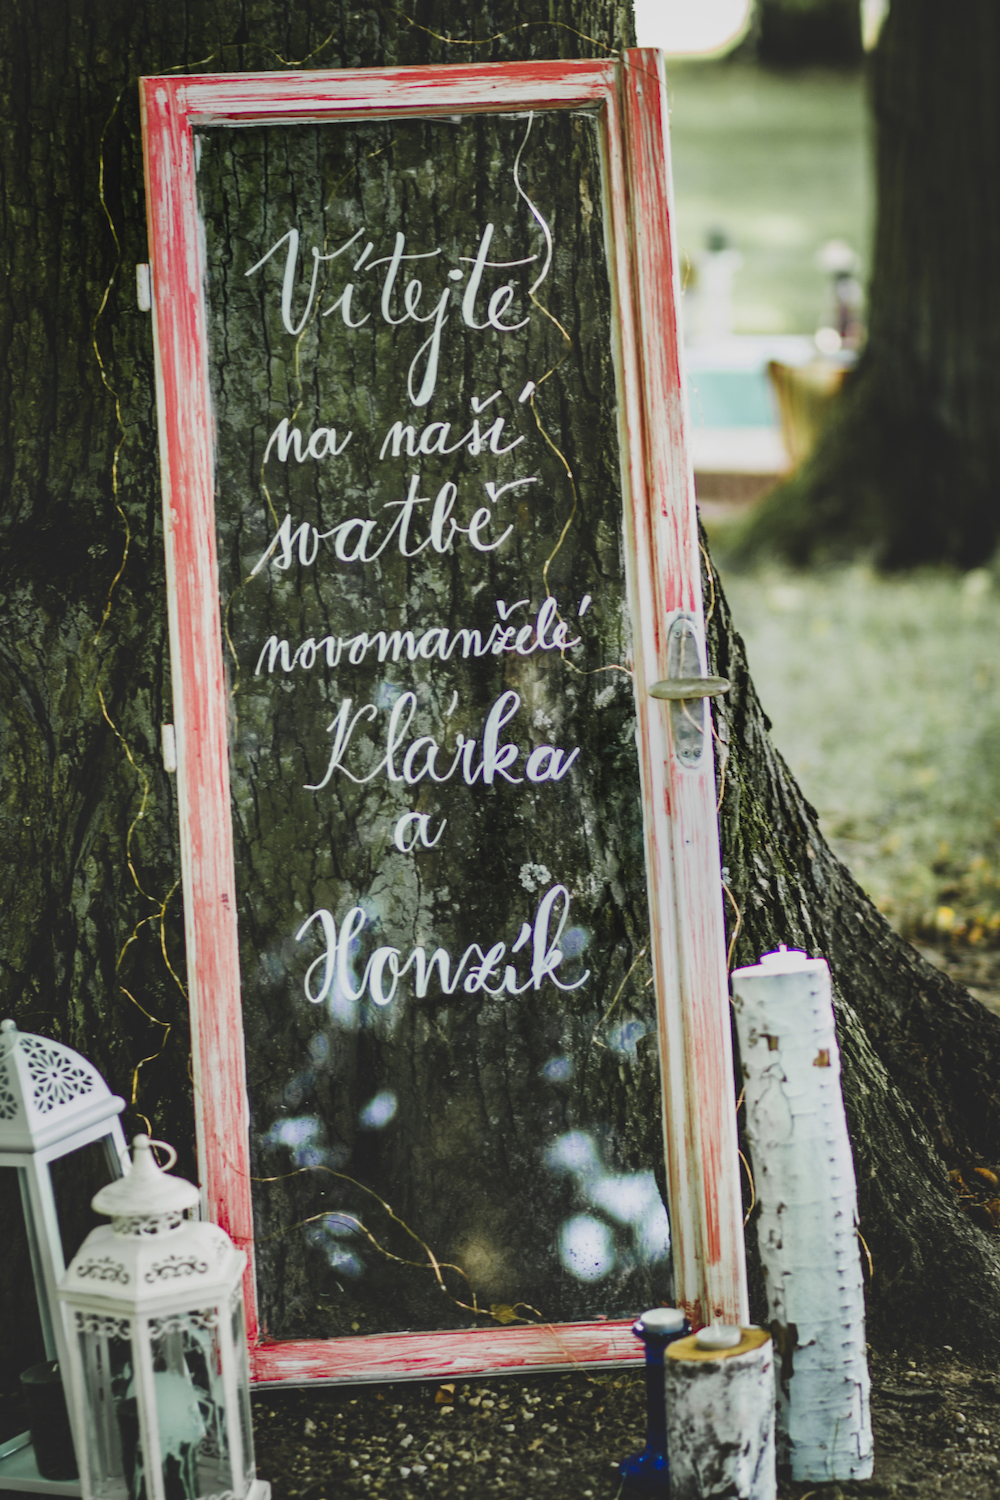 Vítejte
na naší
svatbě
novomanželé
Klárka
a
Honzík